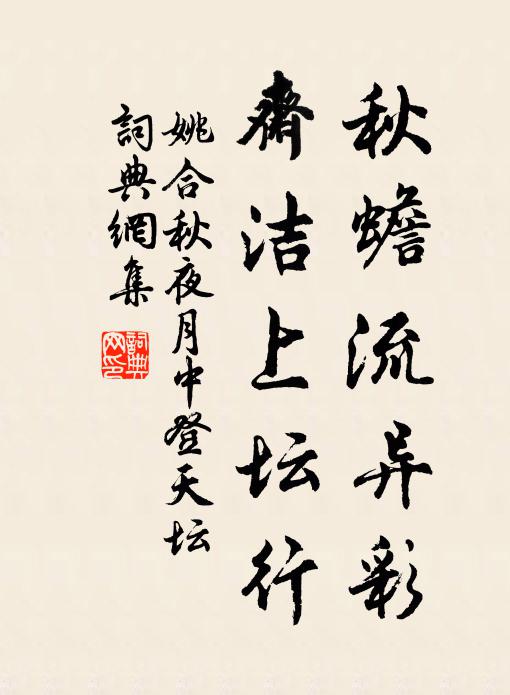 秋蟾流异彩
齋洁上坛行
姚合秋夜月中登天坛
詞典網集
詞典
网印